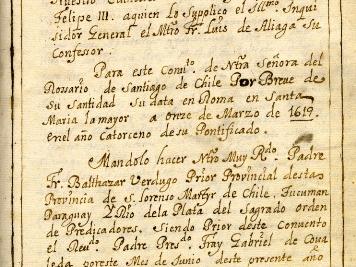 Felipe III. aquien lo Sypolico el Ill.mo Inqui
sidor General el Mtro Fr. Luis de Aliaga Su
Confesor.
Para este Com.to de Ntra Señora del
Rosario de Santiago de Chile Por Breve de
Su Santidad Su data en Roma en Santa
Maria la mayor a onze de Marzo de 1619.
en el año Catorceno de su Pontificado.
Mandolo hacer Ntro Muy R.do Padre
Fr. Balthazar Verdugo Prior Provincial desta
Provincia de S. Lorenso Martyr de Chile, Tucuman
Paraguay y Rio de la Plata del Sagrado orden
de Predicadores. Siendo Prior deste Convento
el Reu.do Padre Pres.do Fray Gabriel de Coua
leda por este Mes de Junio deste presente año